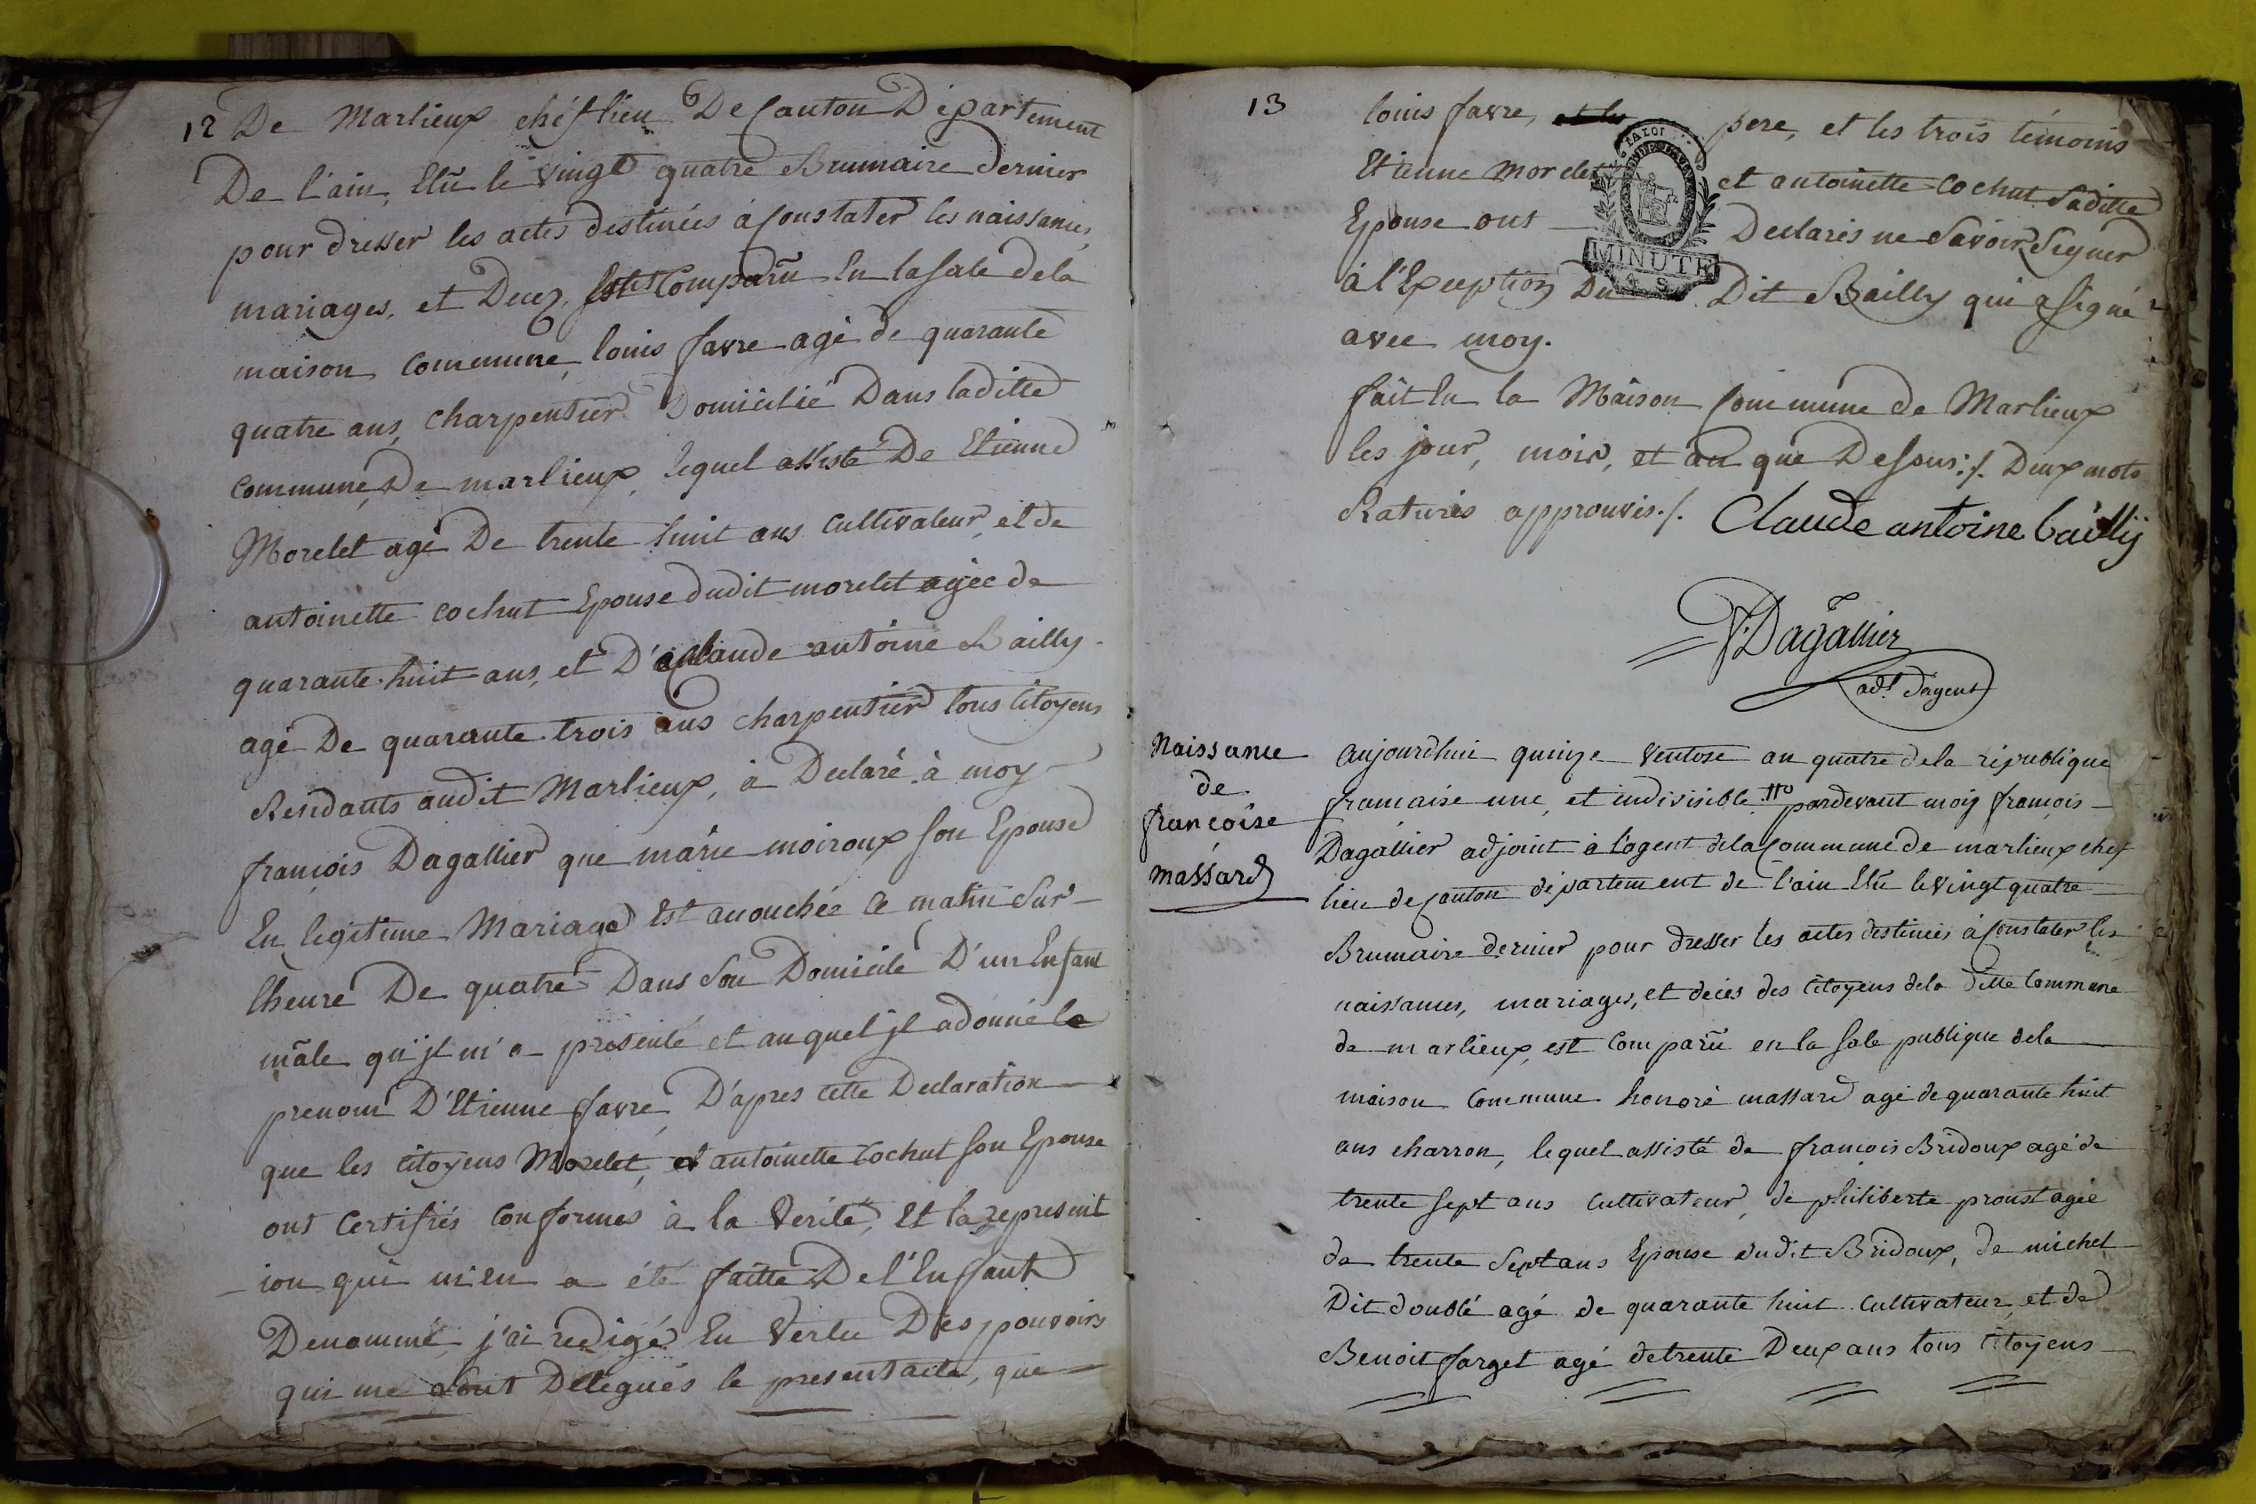 12
De Marlieux chéf lieu De Canton Département
De l'ain, Elû le vingt quatre Brumaire dernier
pour dresser les actes destinées à Constater les naissances,
mariages, et Decez, Est Comparû En la sale de la
maison commune, louis favre agé de quarante
quatre ans, charpentier Domicilié Dans laditte
commune De marlieux, lequel assisté De Etienne
Morelet agé De trente huit ans cultivateur, et de
antoinette cochut Epouse dudit morelet agée de
quarante-huit ans, et D' Claude antoine Bailly
agé De quarante-trois ans charpentier tous Citoyens
Residants audit Marlieux, à Declaré à moy
françois Dagallier que marie moiroux son Epouse
En legitime Mariage Est accouchée ce matin Sur
lheure De quatre Dans Son Domicile D'un Enfant
mâle qu'jl m'a présenté et auquel jl a donné le
prenom D'Etienne favre, D'apres cette Declaration
que les citoyens Morelet, et antoinette Cochut son Epouse
ont Certifiés Conformes à la Verité, Et la represent
ion qui m'en a été faitte De l'Enfant
Denommé, j'ai redigé En Vertu Des pouvoirs
qui me sont Delegués le present acte, que
13
louis favre, et les pere, et les trois témoins
Etienne morelet et antoinette cochut Saditte
Epouse ont Declarés ne Savoir Signer
à l'Exception Du Dit Bailly qui a signé
avec moy.
fait En la Maison Commune de Marlieux
les jour, mois, et an que Desous ./. Deux mots
Raturés approuvés ./. Claude antoine bailly
MINUTE
F. Dagallier
adt. d'agent
Naissance
de
françoise
massard
aujourdhui quinze Ventose an quatre de la république
française une, et indivisible pardevant moy françois
Dagallier adjoint à l'agent de la Commune de marlieux chef
lieu de Canton département de l'ain Elû le vingt quatre
Brumaire dernier pour dresser les actes destinées à Constater les
naissances, mariages, et decès des Citoyens de la ditte Commune
de marlieux, est Comparû en la sale publique de la
maison Commune honoré massard agé de quarante huit
ans charron, lequel assisté de françois Bridoux agé de
trente sept ans cultivateur, de philiberte proust agée
de trente Sept ans Epouse dudit Bridoux, de michel
Dit doublé agé de quarante huit cultivateur, et de
Benoit farget agé de trente Deux ans tous Citoyens